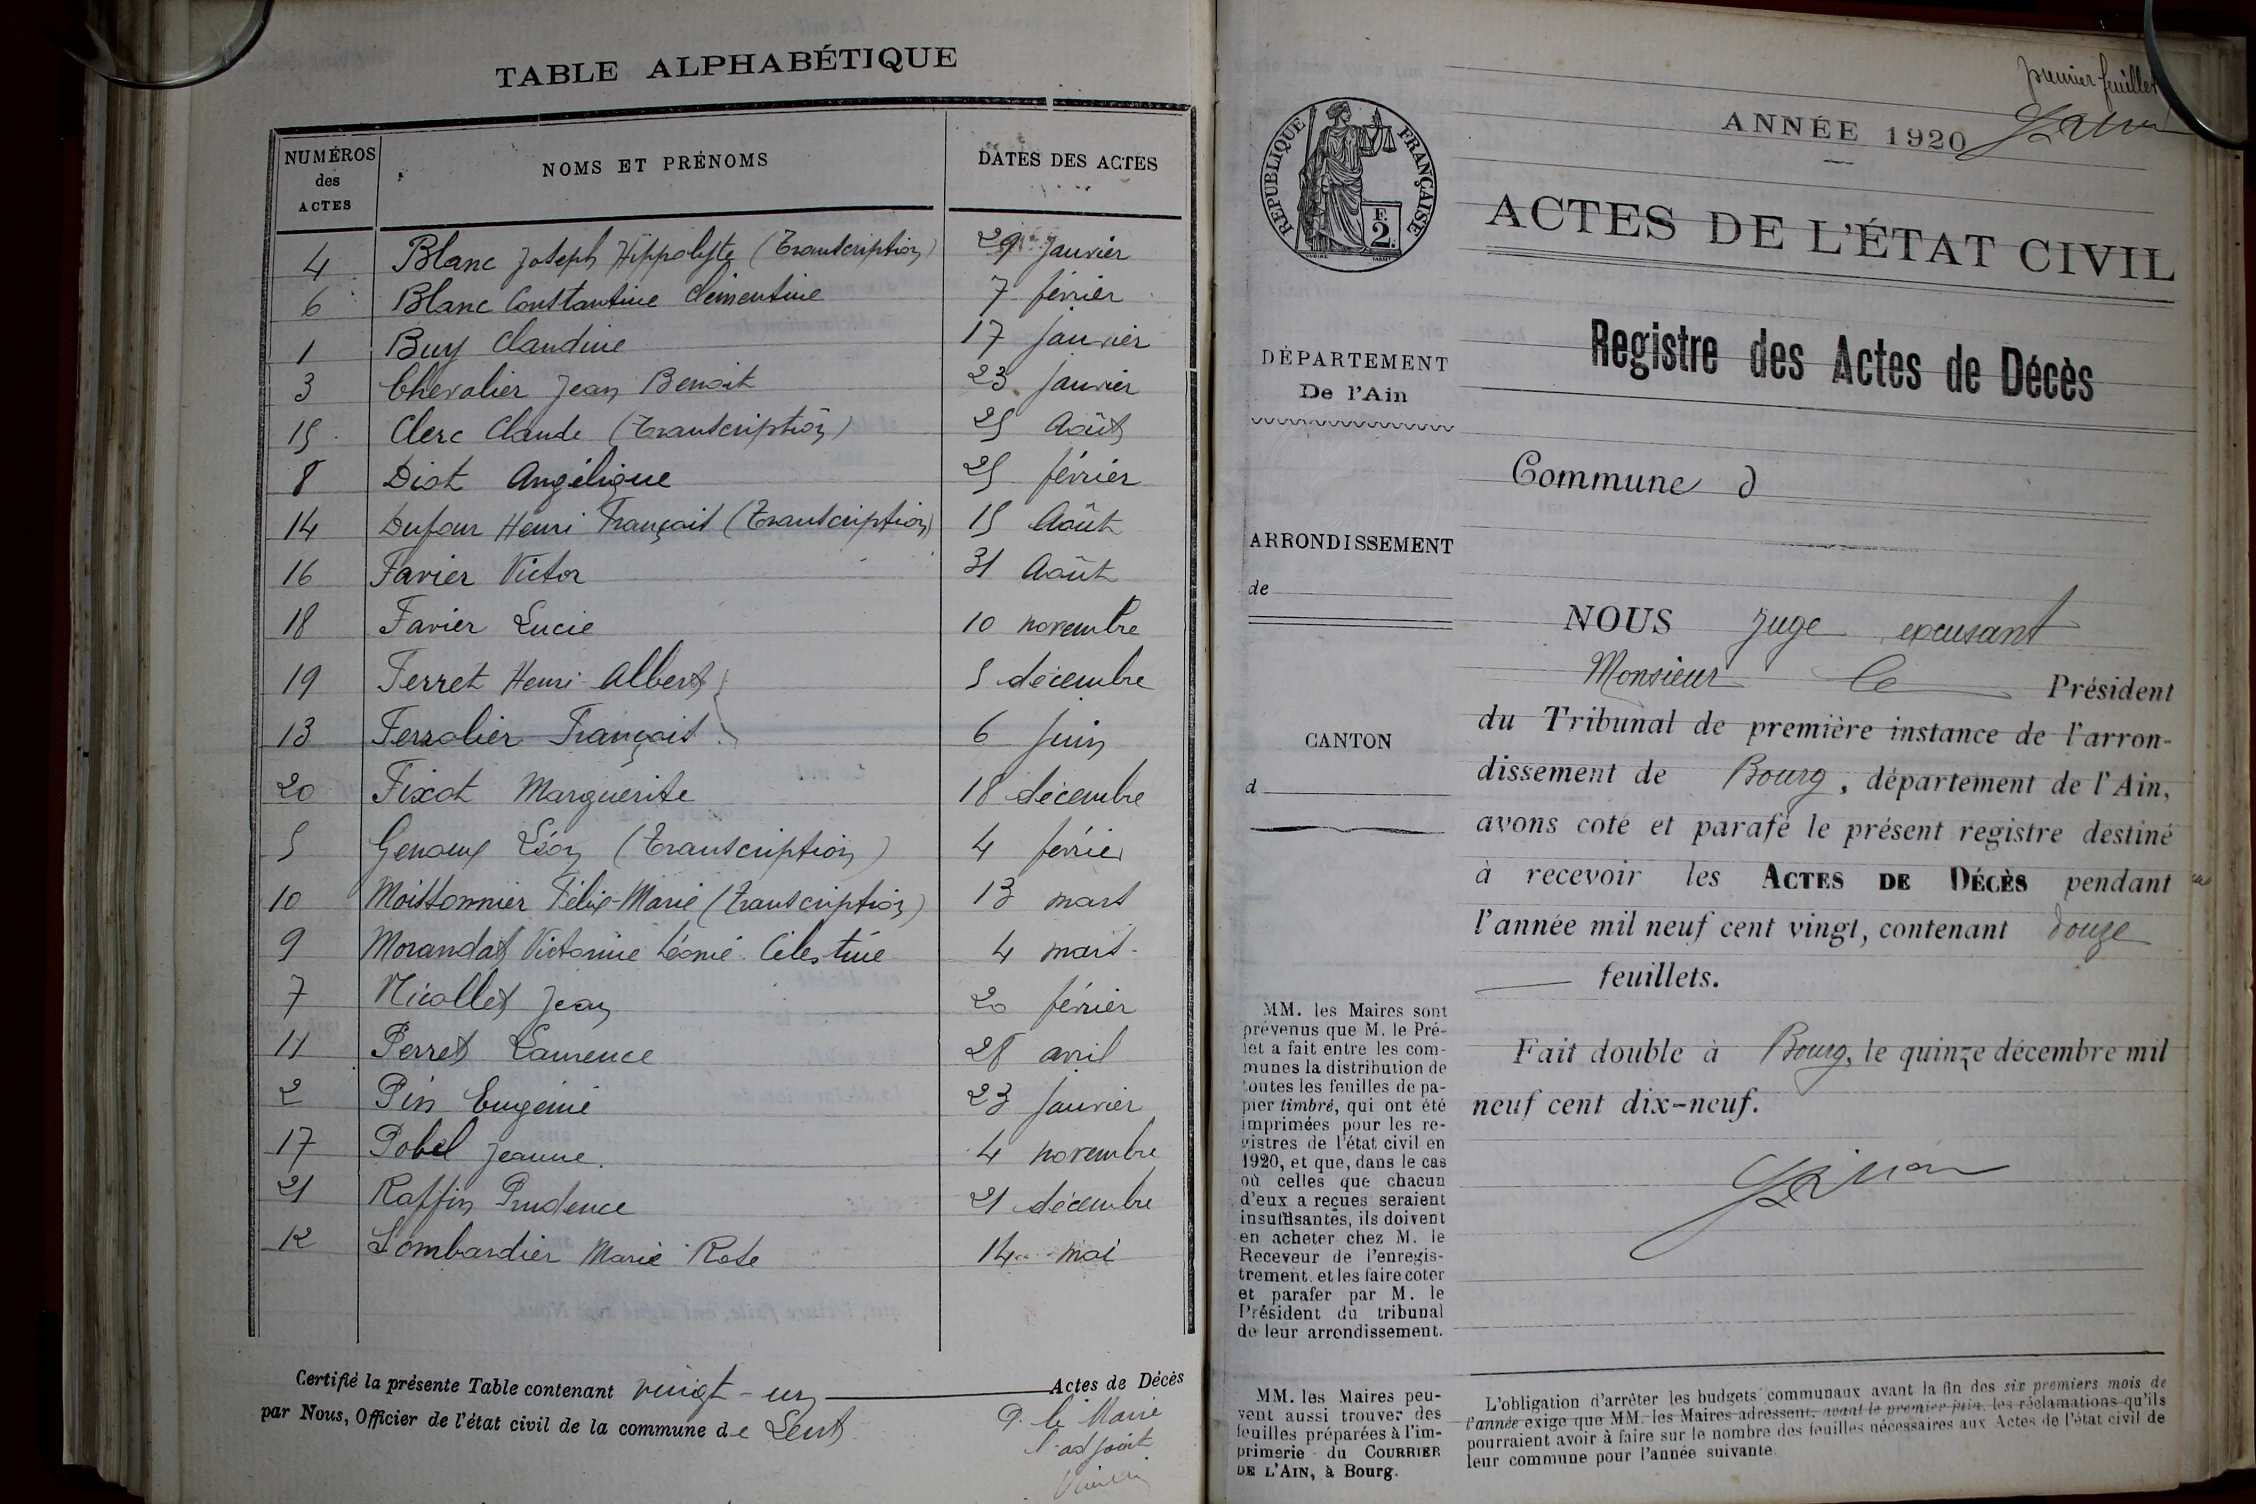 TABLE ALPHABÉTIQUE
NUMÉROS des ACTES NOMS ET PRÉNOMS DATES DES ACTES
4 Blanc Joseph Hippolyte (Transcription) 29 janvier
6 Blanc Constantine Clémentine 7 février
1 Buy Claudine 17 janvier
3 Chevalier Jean Benoit 23 janvier
15 Clerc Claude (Transcription) 25 Août
8 Diot Angélique 25 février
14 Dufour Henri François (Transcription) 15 Août
16 Favier Victor 31 Août
18 Favier Lucie 10 novembre
19 Ferret Henri Albert 5 décembre
13 Ferrolier François 6 juin
20 Fixot Marguerite 18 décembre
5 Genoux Léon (Transcription) 4 février
10 Moissonnier Félix-Marie (Transcription) 13 mars
9 Morandat Victorine Léonie Célestine 4 mars
7 Nicollet Jean 20 février
11 Perret Laurence 28 avril
2 Pin Eugénie 23 janvier
17 Pobel Jeanne. 4 novembre
21 Raffin Prudence 21 décembre
12 Lombardier Marie Rose 14 mai
Certifié la présente Table contenant vingt-un Actes de Décès
par Nous, Officier de l'état civil de la commune de Lent
P. le Maire
l'adjoint
premier feuillet
ANNÉE 1920
RÉPUBLIQUE FRANÇAISE
F.
2.
ACTES DE L'ÉTAT CIVIL
Registre des Actes de Décès
DÉPARTEMENT
De l'Ain
Commune d
ARRONDISSEMENT
de
CANTON
d
NOUS Juge excusant
Monsieur le Président
du Tribunal de première instance de l'arron-
dissement de Bourg, département de l'Ain,
avons coté et parafé le présent registre destiné
à recevoir les ACTES DE DÉCÈS pendant
l'année mil neuf cent vingt, contenant douze
feuillets.
Fait double à Bourg, le quinze décembre mil
neuf cent dix-neuf.
MM. les Maires sont
prévenus que M. le Pré-
fet a fait entre les com-
munes la distribution de
toutes les feuilles de pa-
pier timbré, qui ont été
imprimées pour les re-
gistres de l'état civil en
1920, et que, dans le cas
où celles que chacun
d'eux a reçues seraient
insuffisantes, ils doivent
en acheter chez M. le
Receveur de l'enregis-
trement. et les faire coter
et parafer par M. le
Président du tribunal
de leur arrondissement.
MM. les Maires peu-
vent aussi trouver des
feuilles préparées à l'im-
primerie du COURRIER
DE L'AIN, à Bourg.
L'obligation d'arrêter les budgets communaux avant la fin des six premiers mois de
l'année exige que MM. les Maires adressent, avant le premier juin, les réclamations qu'ils
pourraient avoir à faire sur le nombre des feuilles nécessaires aux Actes de l'état civil de
leur commune pour l'année suivante.